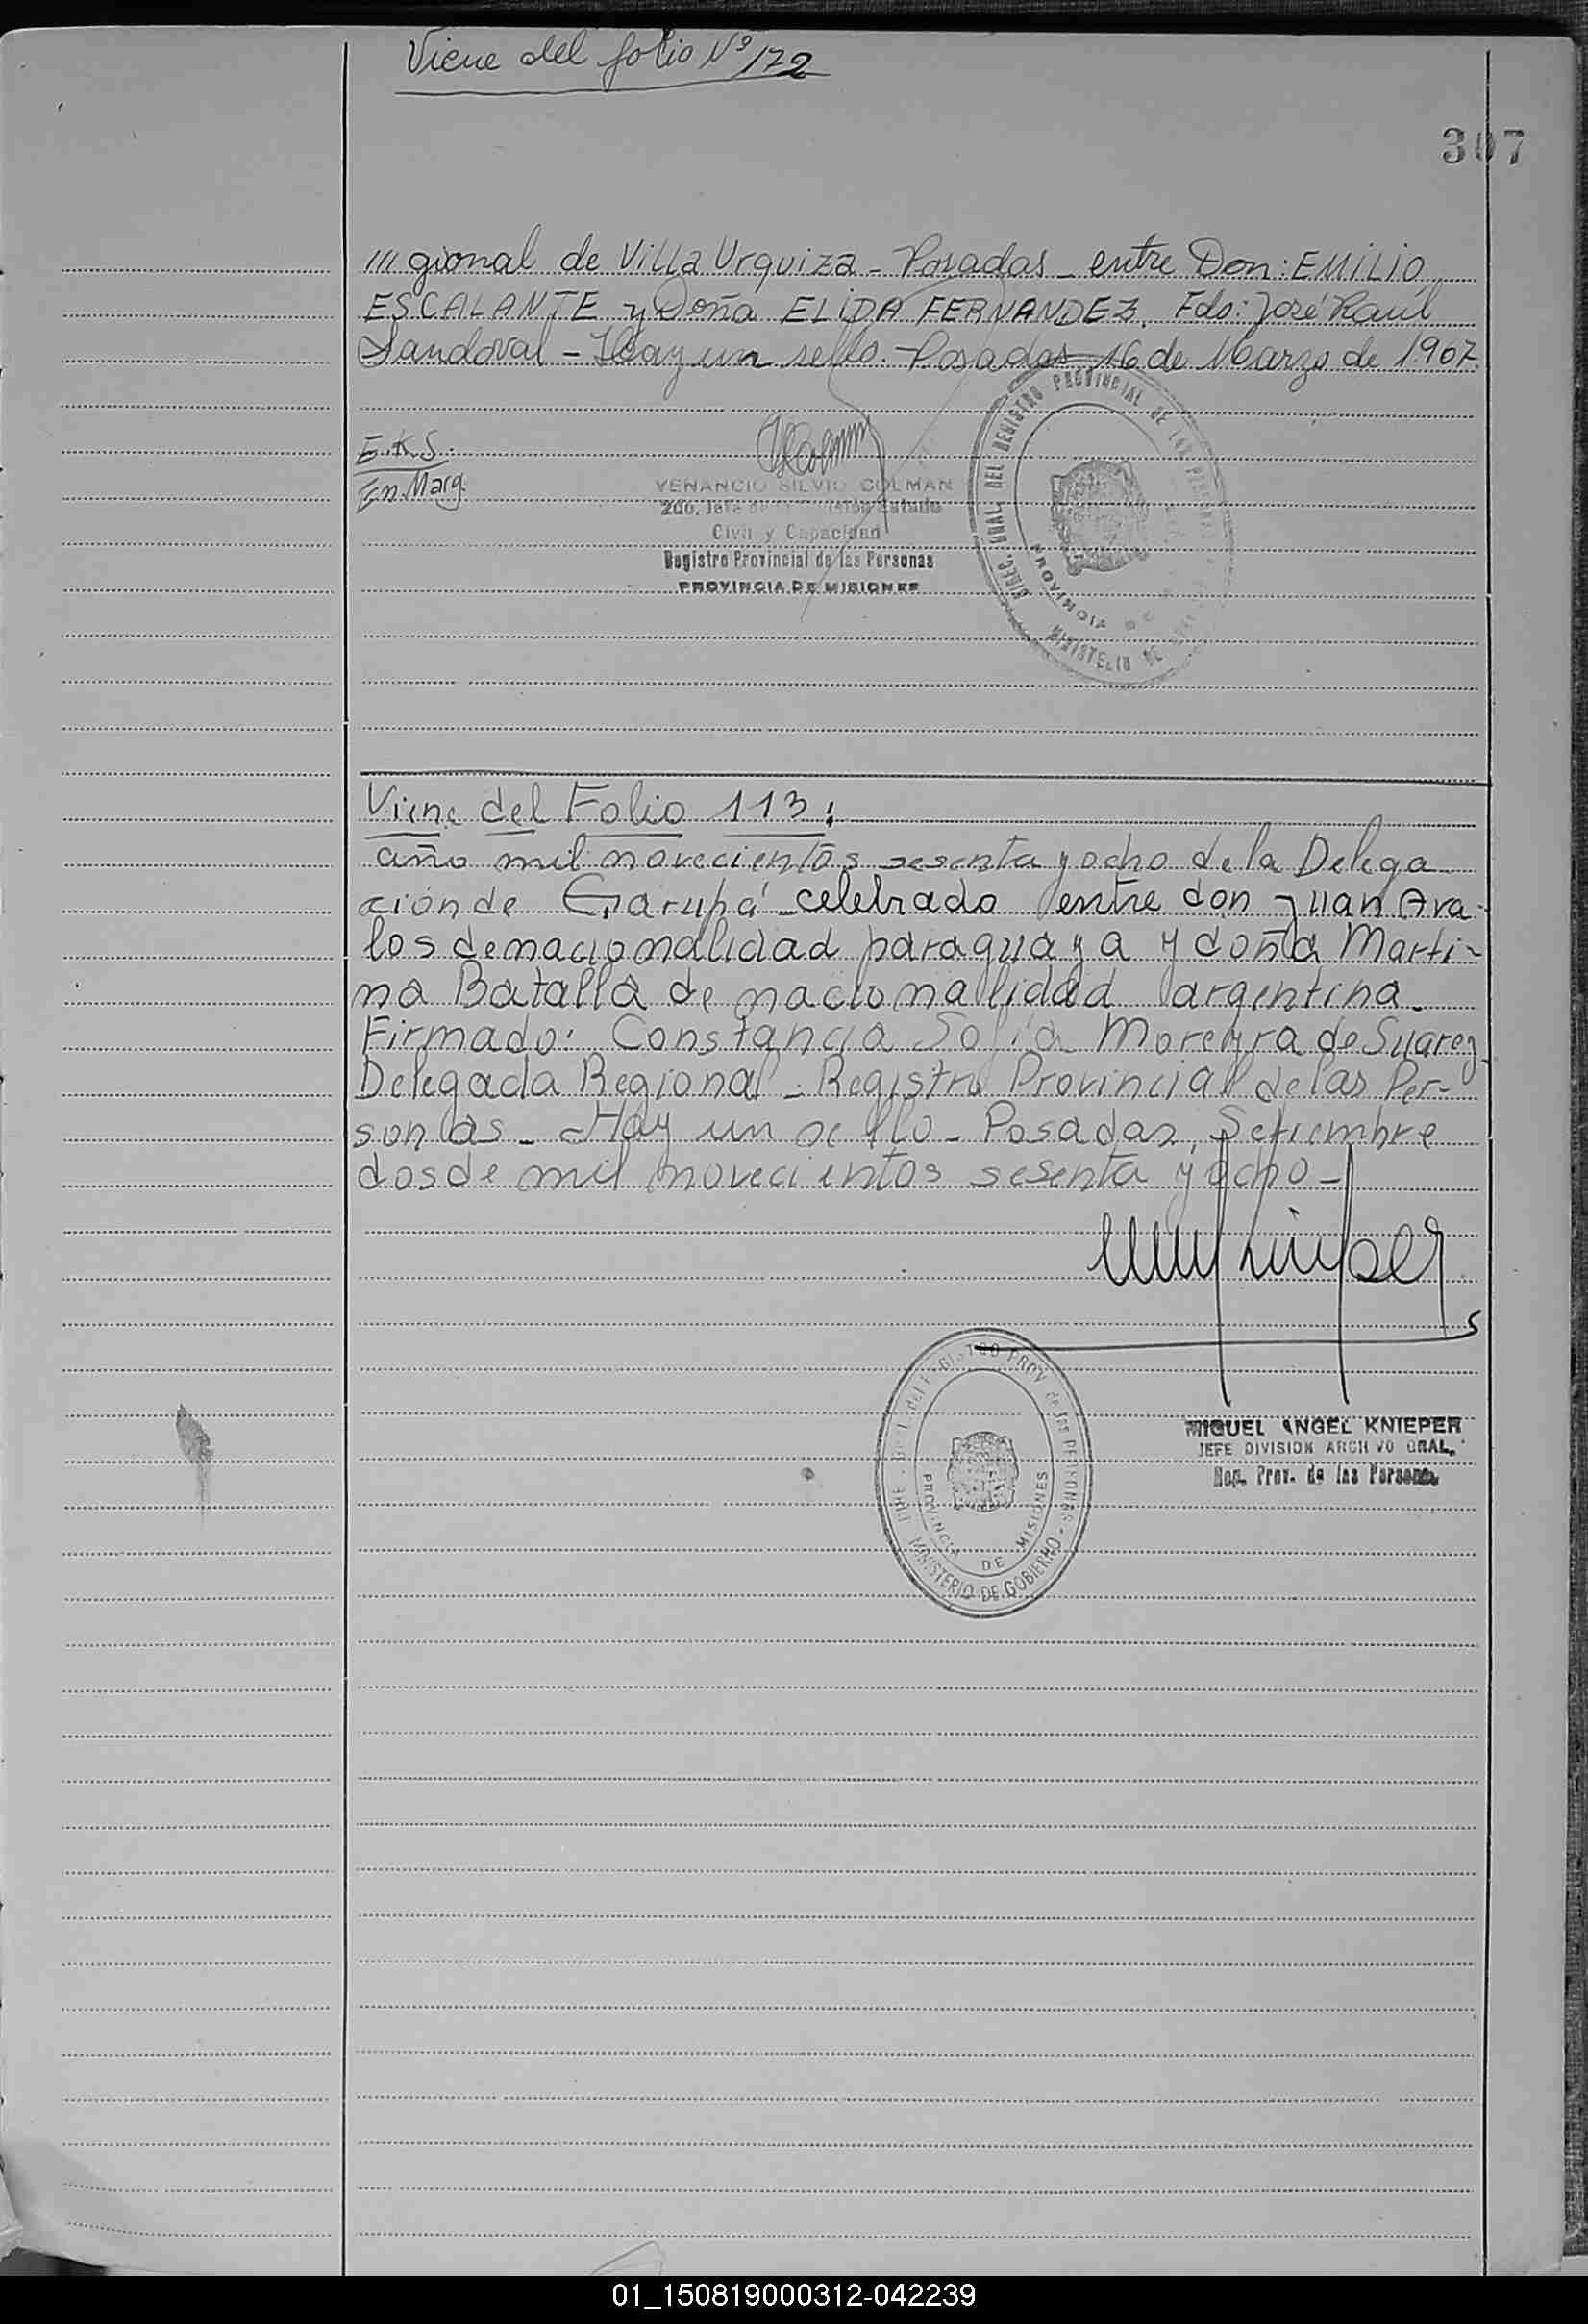 Viene del folio Nº 172
307
/// gional de Villa Urquiza - Posadas - entre Don: EMILIO
ESCALANTE y Doña ELIDA FERNANDEZ. Fdo: José Raúl
Sandoval - Hay un sello. - Posadas 16 de Marzo de 1967.
E.K.S.
En. Marg.
VENANCIO SILVIO COLMAN
2do. Jefe Estado
Civil y Capacidad
Registro Provincial de las Personas
PROVINCIA DE MISIONES
DIREC. GRAL. DEL REGISTRO PROVINCIAL DE LAS PERSONAS
PROVINCIA DE
MINISTERIO DE
Viene del Folio 113:
año mil novecientos sesenta y ocho de la Delega
ción de Garupá celebrado entre don Juan Ava-
los de nacionalidad paraguaya y doña Marti-
na Batalla de nacionalidad argentina.
Firmado: Constancia Sofía Moreyra de Suarez
Delegada Regional - Registro Provincial de las Per-
sonas - Hay un sello - Posadas, Setiembre
dos de mil novecientos sesenta y ocho -
MIGUEL ANGEL KNIEPER
JEFE DIVISION ARCHIVO GRAL.
Reg. Prov. de las Personas
PROV. de las PERSONAS
PROVINCIA DE MISIONES
MINISTERIO DE GOBIERNO
01_150819000312-042239